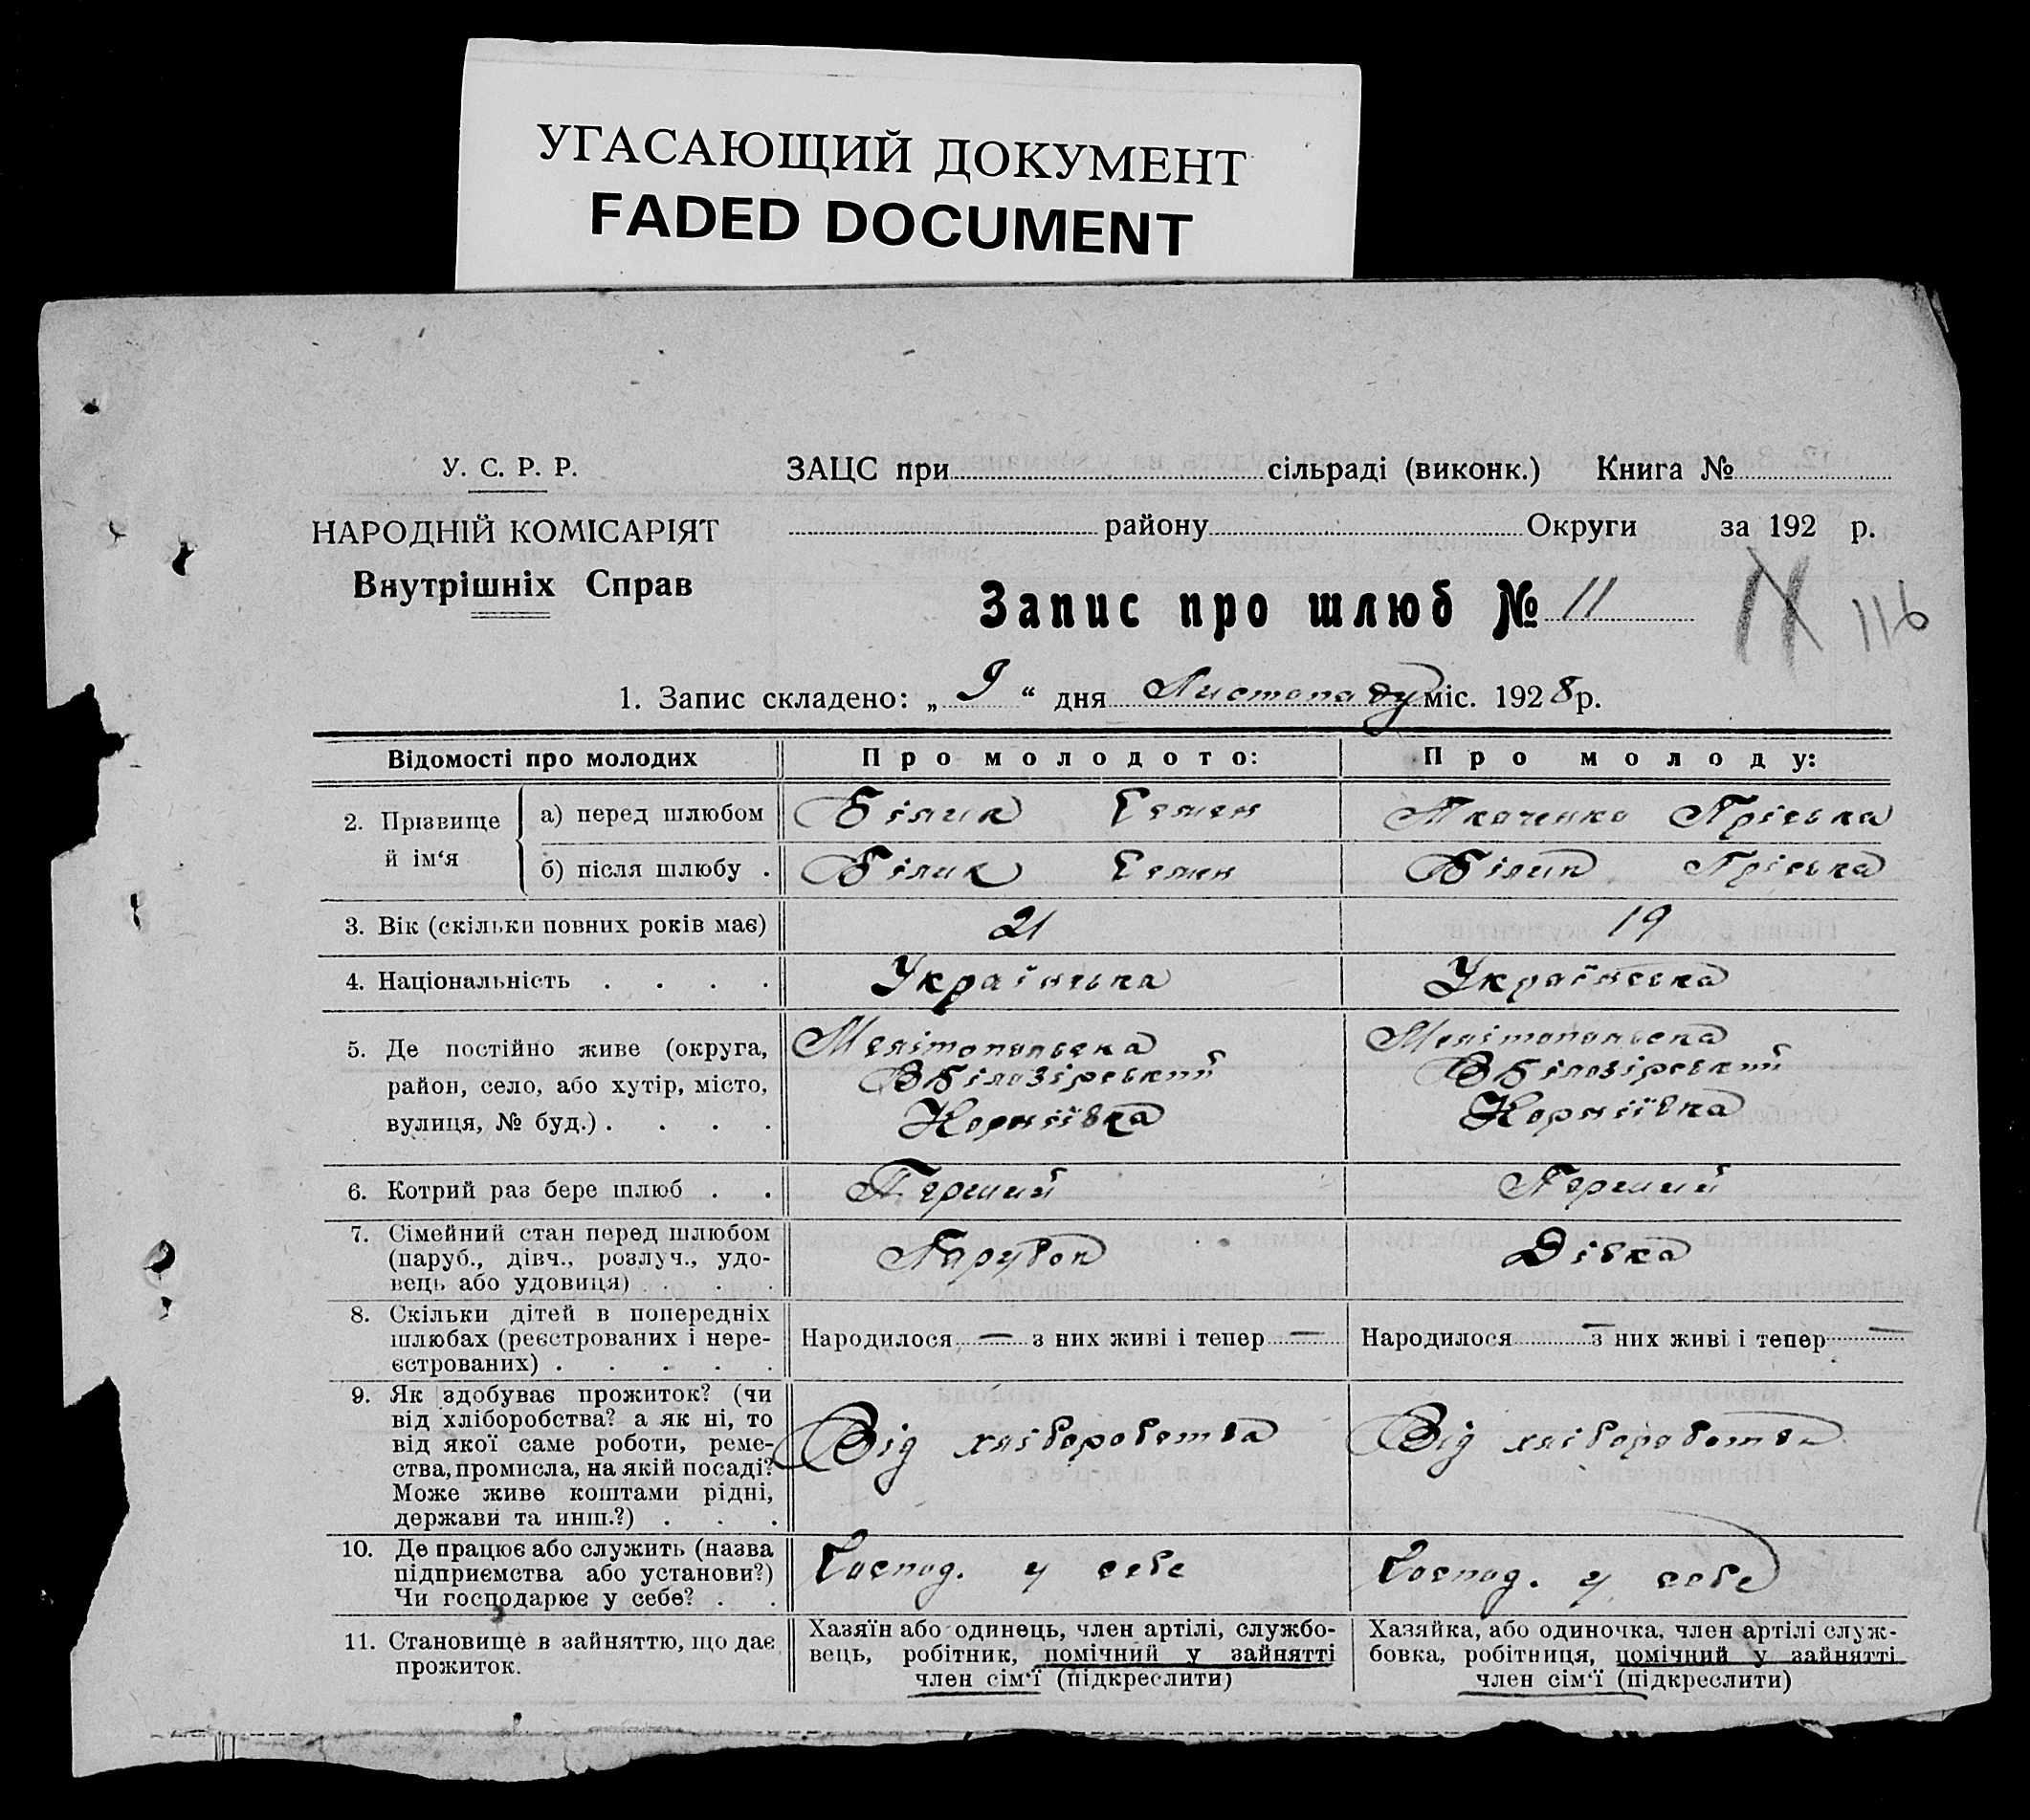 УГАСАЮЩИЙ ДОКУМЕНТ
FADED DOCUMENT
У. С. Р. Р.
НАРОДНІЙ КОМІСАРІЯТ
Внутрішніх Справ
ЗАЦС при сільраді (виконк.) Книга №
району Округи за 192 р.
Запис про шлюб № 11
116
1. Запис складено: „ 9 “ дня Листопаду міс. 1928 р.
Відомості про молодих
Про молодого:
Про молоду:
2. Прізвище й ім‘я
а) перед шлюбом
Білик Семен
Ткаченко Пріська
б) після шлюбу .
Білик Семен
Білик Пріська
3. Вік (скільки повних років має)
21
19
4. Національність . . . .
Українська
Українська
5. Де постійно живе (округа,
район, село, або хутір, місто,
вулиця, № буд.) . . . .
Мелітопольська
В Білозірський
Корніївка
Мелітопольська
В Білозірський
Корніївка
6. Котрий раз бере шлюб . .
Перший
Перший
7. Сімейний стан перед шлюбом
(паруб., дівч., розлуч., удо-
вець або удовиця) . . .
Парубок
Дівка
8. Скільки дітей в попередніх
шлюбах (реєстрованих і нере-
єстрованих) . . . . .
Народилося — з них живі і тепер —
Народилося — з них живі і тепер —
9. Як здобуває прожиток? (чи
від хліборобства? а як ні, то
від якої саме роботи, реме-
ства, промисла, на якій посаді?
Може живе коштами рідні,
держави та инш.?) . . .
Від хліборобства
Від хліборобства
10. Де працює або служить (назва
підприємства або установи?)
Чи господарює у себе? . .
Господ. у себе
Господ. у себе
11. Становище в зайняттю, що дає
прожиток.
Хазяїн або одинець, член артілі, службо-
вець, робітник, помічний у зайнятті
член сім‘ї (підкреслити)
Хазяйка, або одиночка, член артілі служ-
бовка, робітниця, помічний у зайнятті
член сім‘ї (підкреслити)